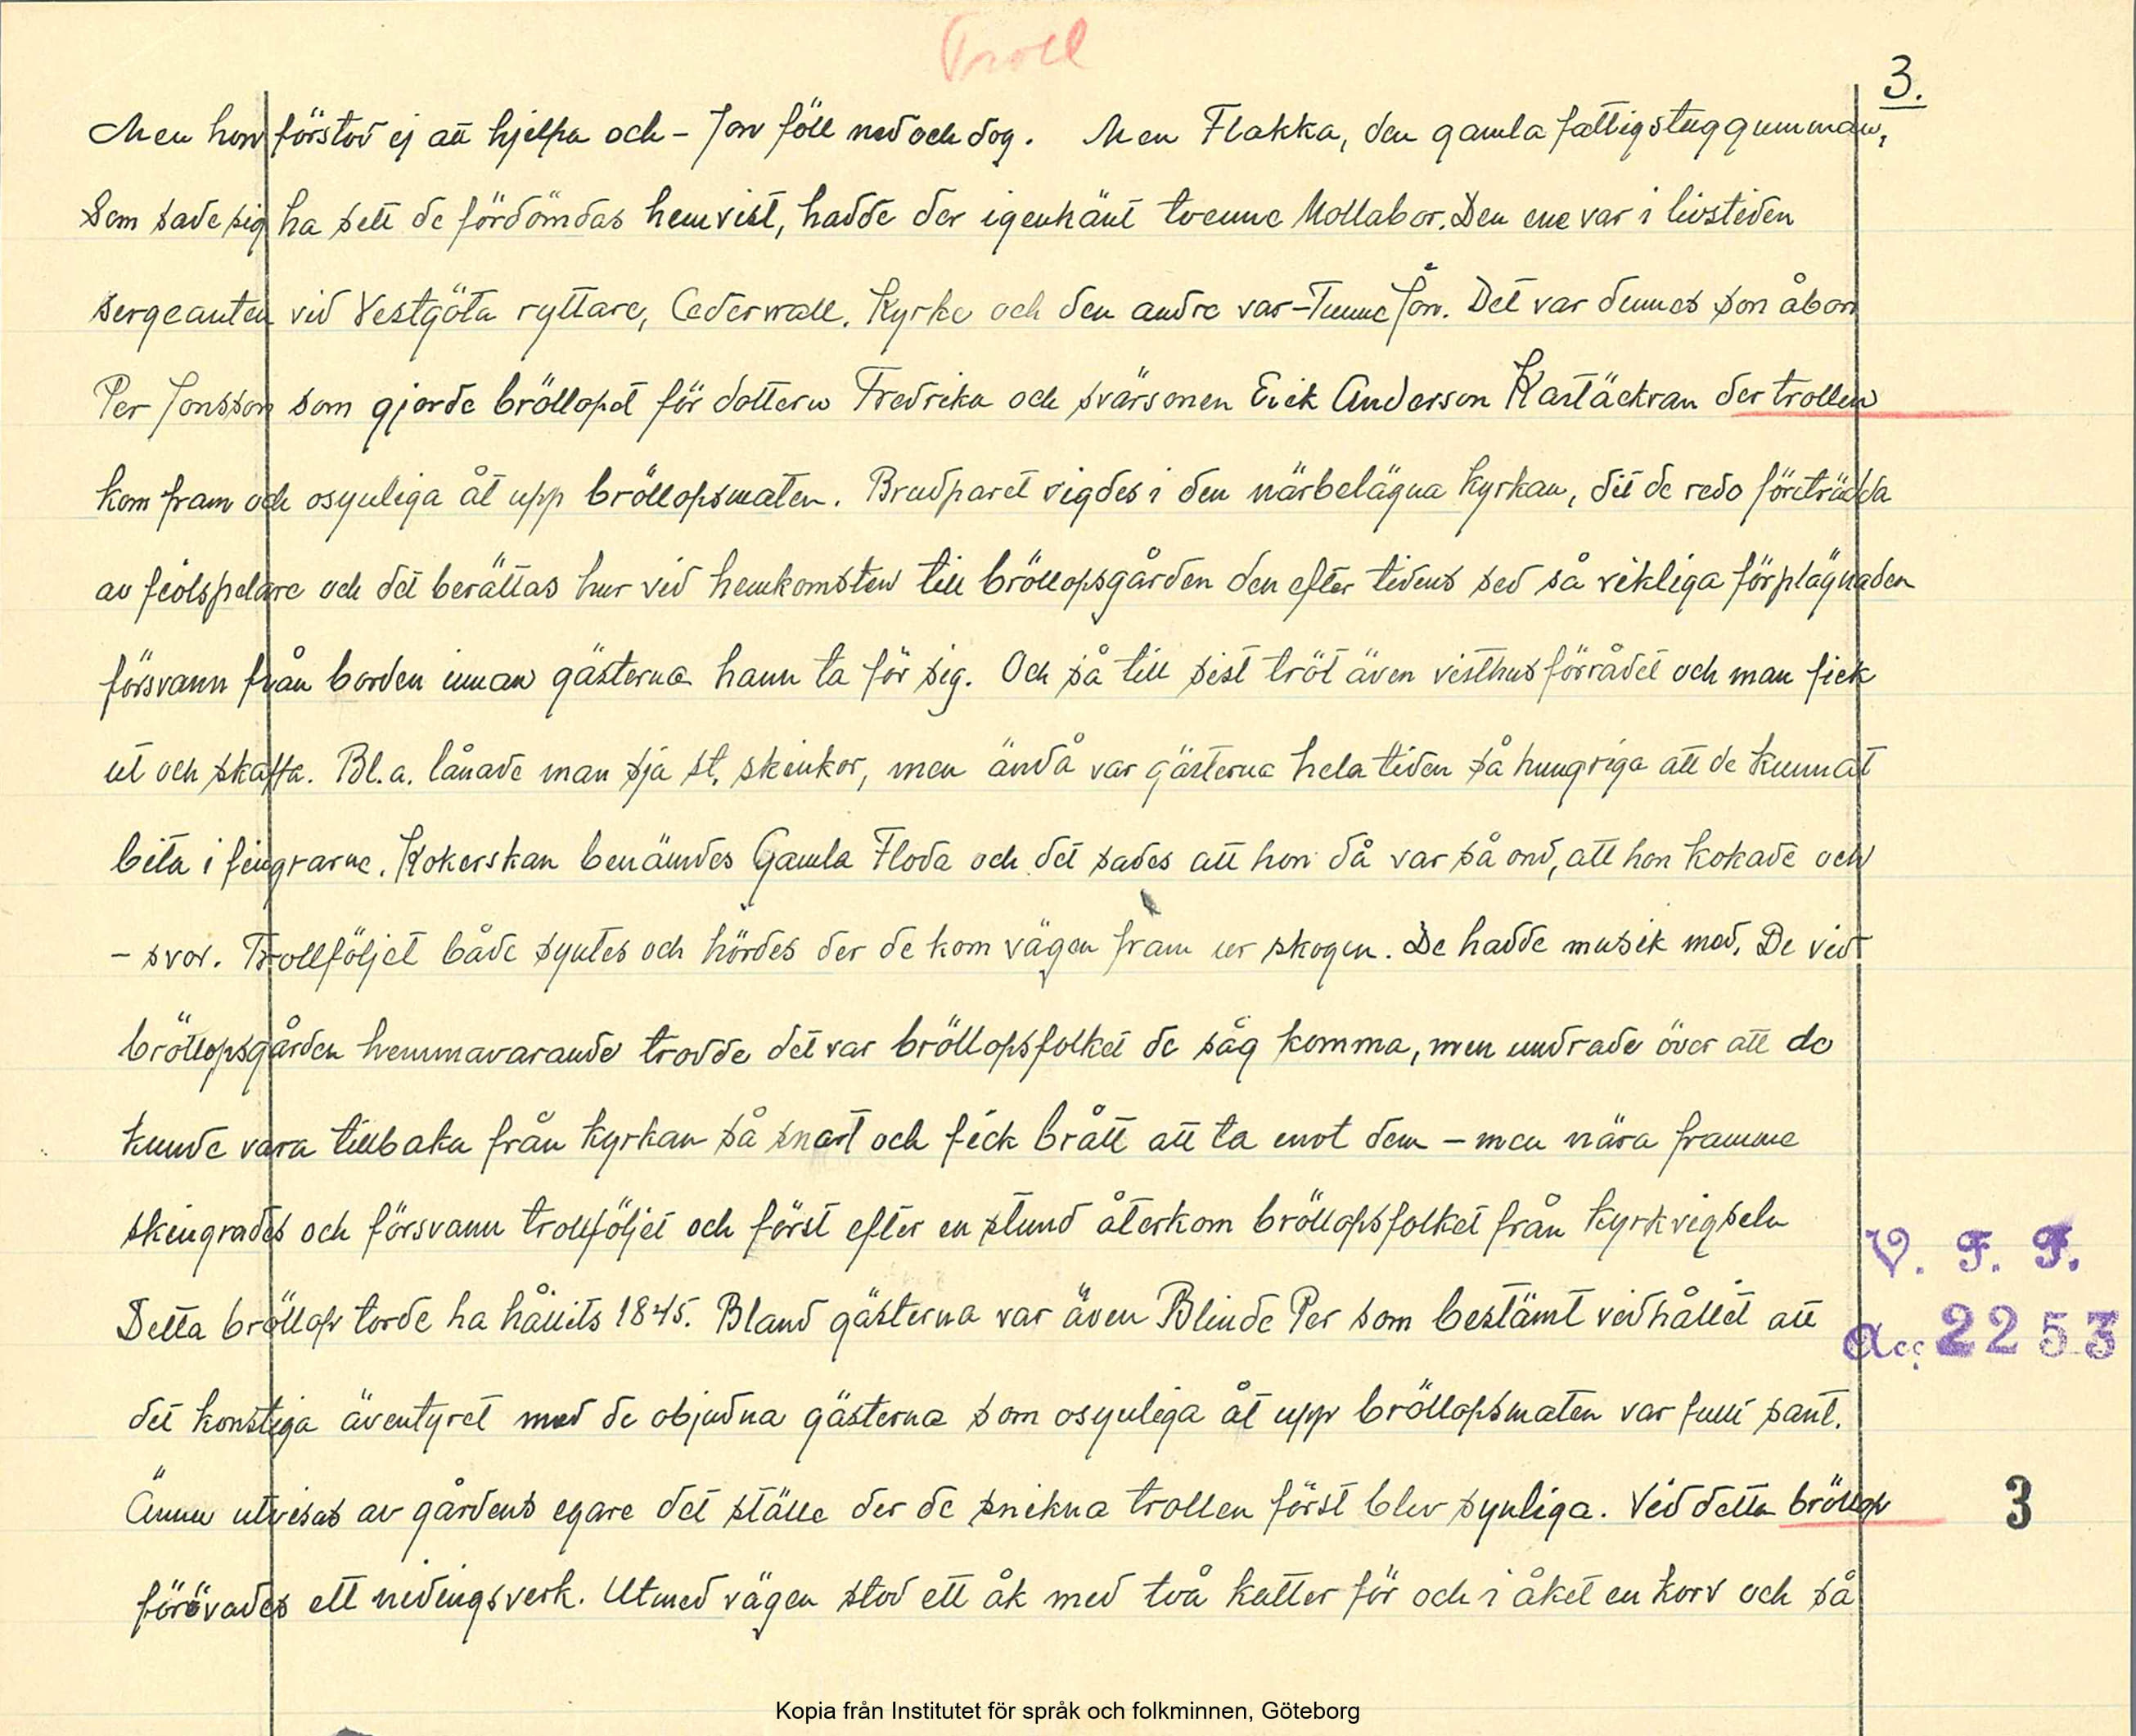 Troll
3.
Men hon förstod ej att hjelpa och - Jon föll ned och dog. Men Flakka, den gamla fattigstuggumman,
Som sade sig ha sett de fördömdas hemvist, hadde der igenkänt tvenne Mollabor. Den ene var i livstiden
sergeanten vid Vestgöta ryttare, Cederwall. Kyrke och den andre var - Jon. Det var dennes son åbon
Per Jonsson som gjorde bröllopet för dottern Fredrika och svärsonen Erik Anderson Kartäckran der trollen
kom fram och osynliga åt upp bröllopsmaten. Brudparet vigdes i den närbelägna kyrkan, dit de redo företrädda
av fiolspelare och det berättas hur vid hemkomsten till bröllopsgården den efter tidens sed så rikliga förplägnaden
försvann från borden innan gästerna hann ta för sig. Och så till sist tröt även visthusförrådet och man fick
ut och skaffa. Bl.a. lånade man sju st. skinkor, men ändå var gästerna hela tiden så hungriga att de kunnat
bita i fingrarne. Kokerskan benämdes Gamla Floda och det sades att hon då var så ond, att hon kokade och
- svor. Trollföljet både syntes och hördes der de kom vägen fram ur skogen. De hadde musik med. De vid
bröllopsgården hemmavarande trodde det var bröllopsfolket de såg komma, men undrade över att de
kunde vara tillbaka från kyrkan så snart och fick brått att ta emot dem - men nära framme
skingrades och försvann trollföljet och först efter en stund återkom bröllopsfolket från kyrkvigseln
Detta bröllop torde ha hållits 1845. Bland gästerna var även Blinde Per som bestämt vidhållet att
det konstiga äventyret med de objudna gästerna som osynliga åt upp bröllopsmaten var fullt sant.
Ännu utvisas av gårdens egare det ställe der de snikna trollen först blev synliga. Vid detta bröllop
förövades ett nidingsverk. Utmed vägen stod ett åk med två katter för och i åket en korv och så
V. F. F.
Acc 2253
3
Kopia från Institutet för språk och folkminnen, Göteborg